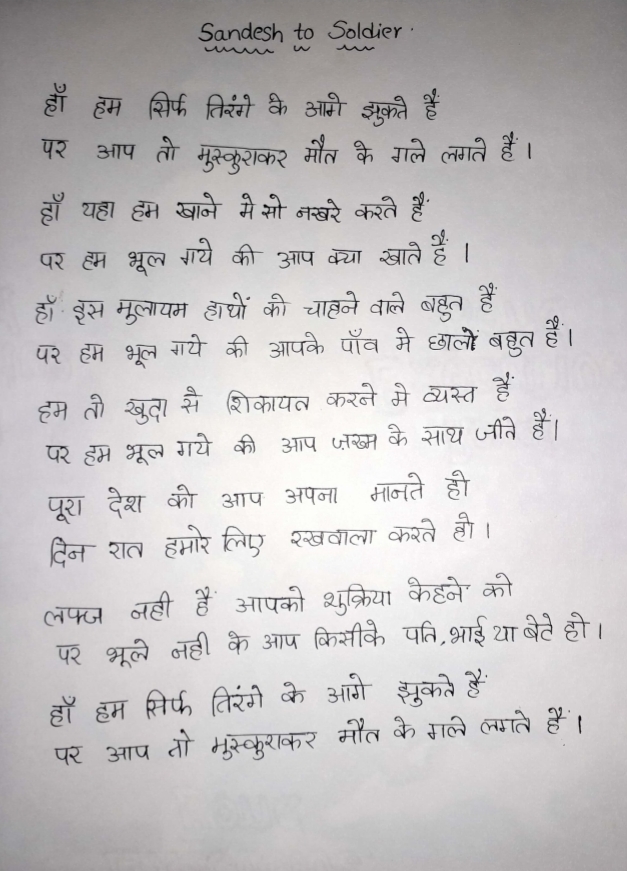 Sandesh to Soldier.
हाँ हम सिर्फ तिरंगे के आगे झुकते हैं
पर आप तो मुस्कुराकर मौत के गले लगते हैं।
हाँ यहा हम खाने मे सो नखरे करते हैं
पर हम भूल गये की आप क्या खाते हैं।
हाँ इस मुलायम हाथों को चाहने वाले बहुत हैं
पर हम भूल गये की आपके पाँव मे छालों बहुत हैं।
हम तो खुदा सै शिकायत करने मे व्यस्त हैं
पर हम भूल गये की आप जख्म के साथ जीते हैं।
पूरा देश को आप अपना मानते हो
दिन रात हमारे लिए रखवाला करते हो।
लफ्ज नही हैं आपको शुक्रिया केहने को
पर भूले नही के आप किसीके पति, भाई या बेटे हो।
हाँ हम सिर्फ तिरंगे के आगे झुकते हैं
पर आप तो मुस्कुराकर मौत के गले लगते हैं।